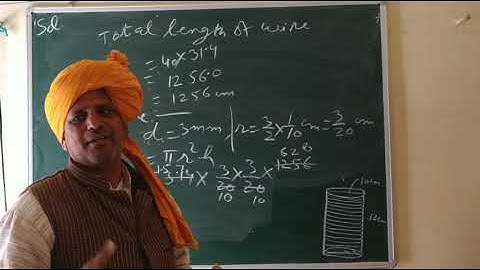 Sol
Total length of wire
= 40 × 31.4
= 1256.0
= 1256 cm
d = 3mm, r = 3/2 × 1/10 cm = 3/20 cm
= πr²h
628
3.14 × 3/20 × 3/20 × 1256
10 10
10cm
12cm